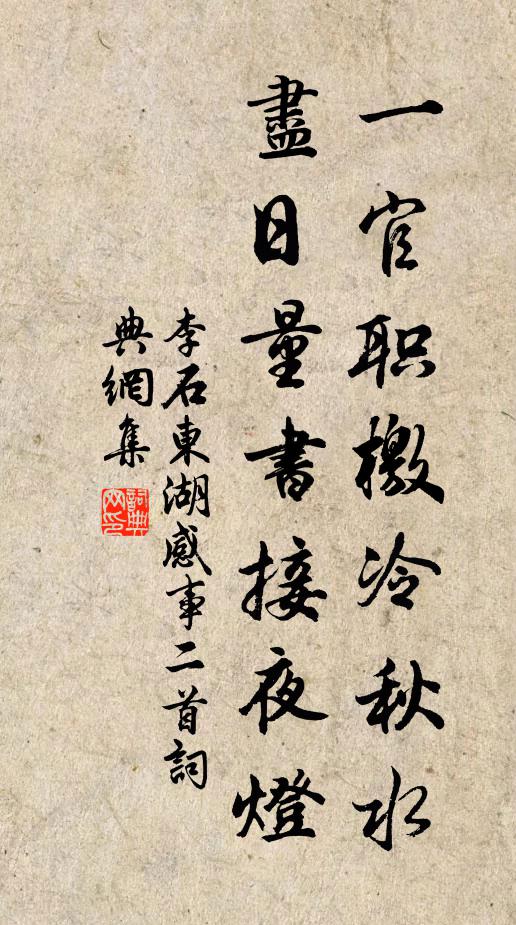 一官职檄冷秋水
盡日量書接夜燈
李石東湖感事二首詞
典網集
詞典
网印